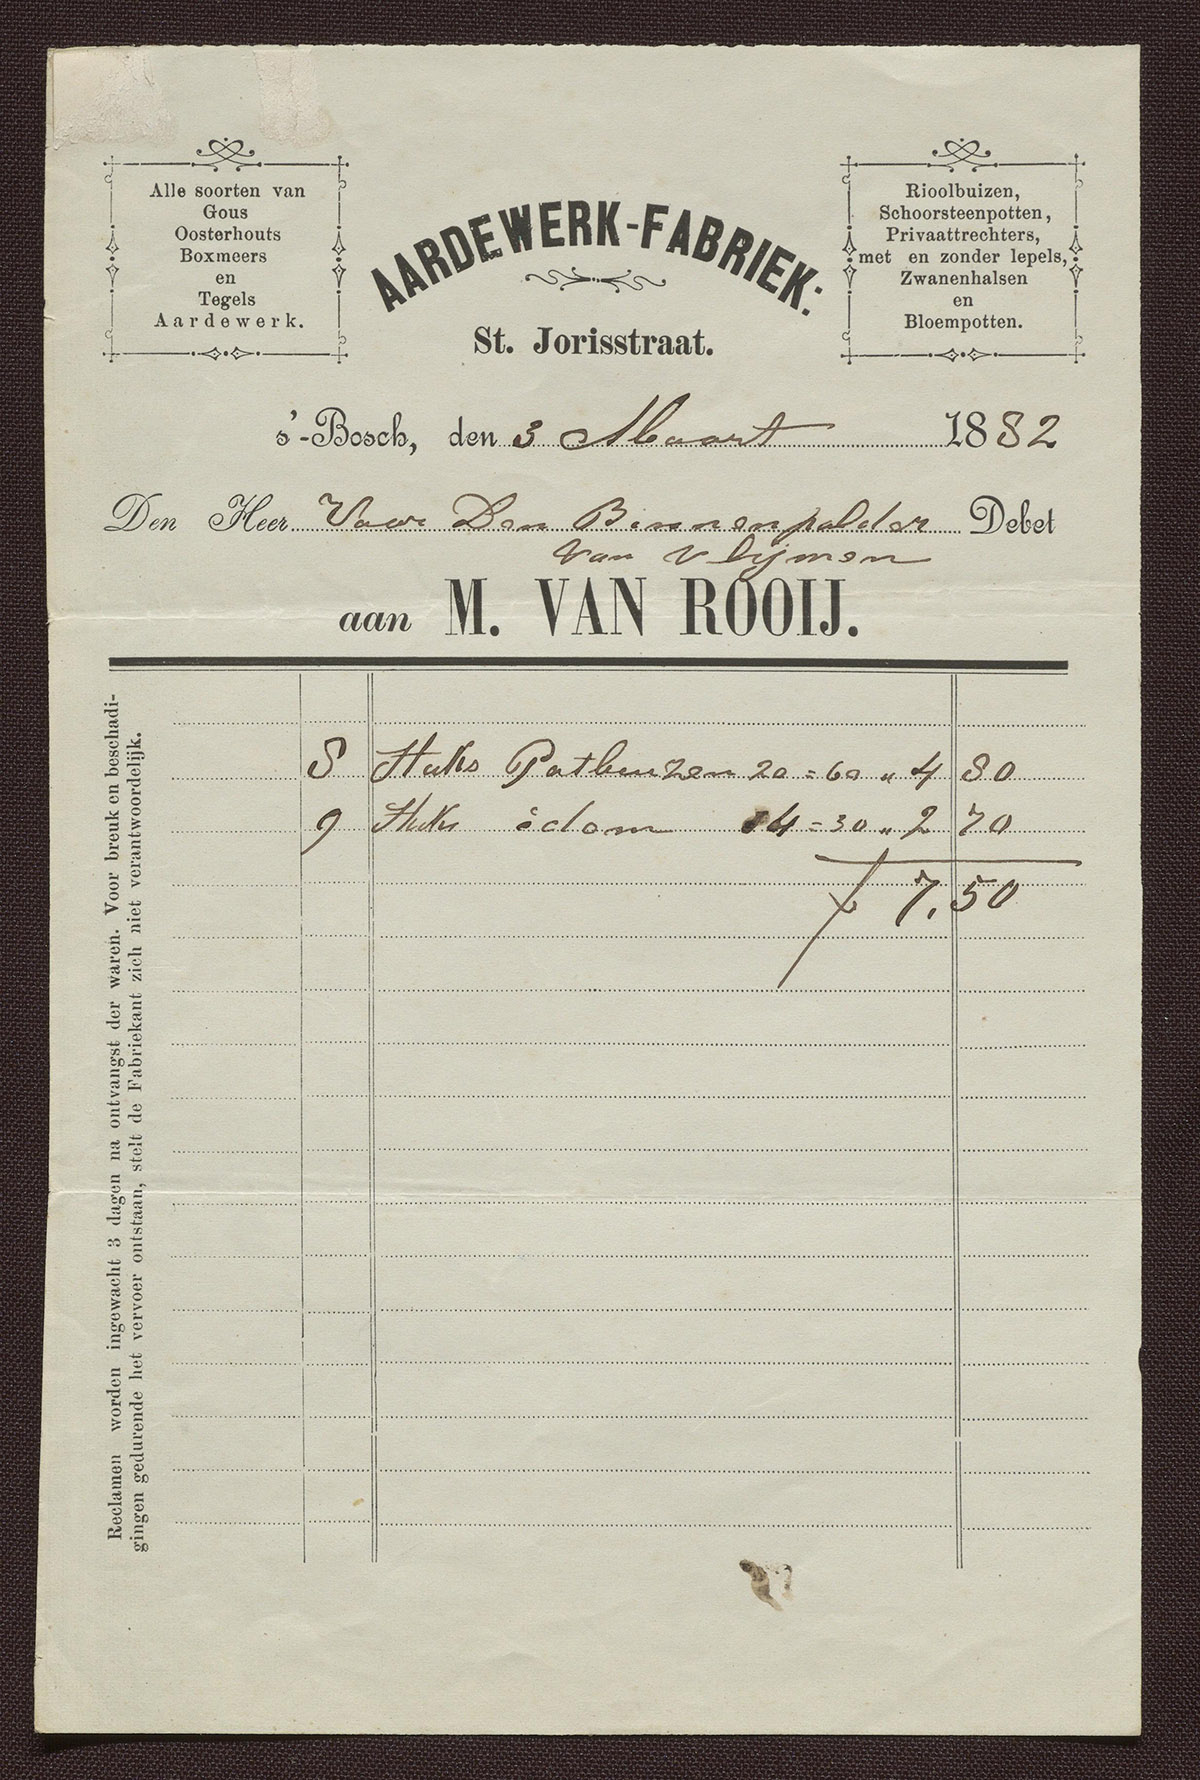 Alle soorten van
Gous
Oosterhouts
Boxmeers
en
Tegels
Aardewerk.
AARDEWERK-FABRIEK:
St. Jorisstraat.
Rioolbuizen,
Schoorsteenpotten,
Privaattrechters,
met en zonder lepels,
Zwanenhalsen
en
Bloempotten.
s'-Bosch, den 3 Maart 1882
Den Heer Voor Den Binnenpolder Debet
Van Vlijmen
aan M. VAN ROOIJ.
8 Stuks Potbuizen 20 = 60 " 4 80
9 Stuks idem 14 = 30 " 2 70
7,50
Reclamen worden ingewacht 3 dagen na ontvangst der waren. Voor breuk en beschadi-
gingen gedurende het vervoer ontstaan, stelt de Fabriekant zich niet verantwoordelijk.